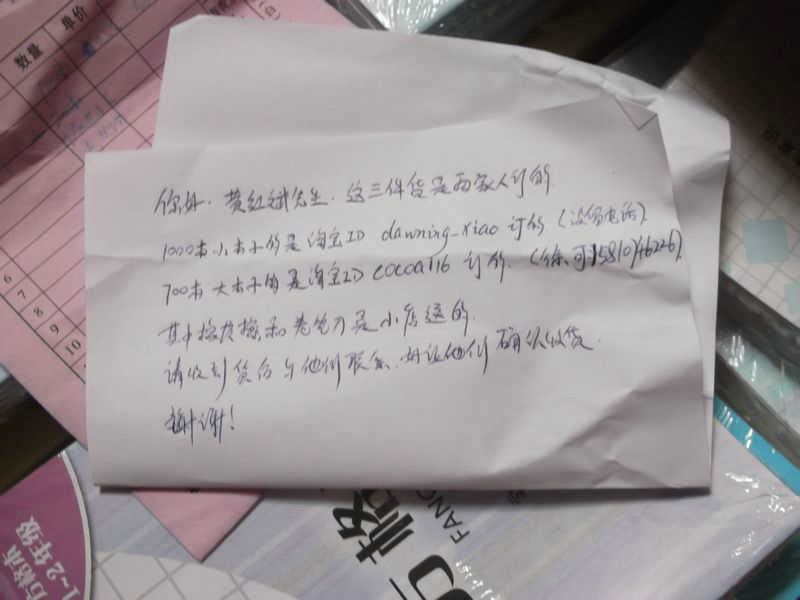 数量
单价
6
7
8
9
10
你好，黄红斌先生，这三件货是两家人订的
1000本小本子的是淘宝ID dawning_xiao 订的（没留电话）
700本大本子的是淘宝ID cocoa116 订的.（徐、可15810746226）
其中橡皮擦和卷笔刀是小店送的.
请收到货后与他们联系，好让他们确认收货.
谢谢！
方格
FANG
方格本
1~2年级